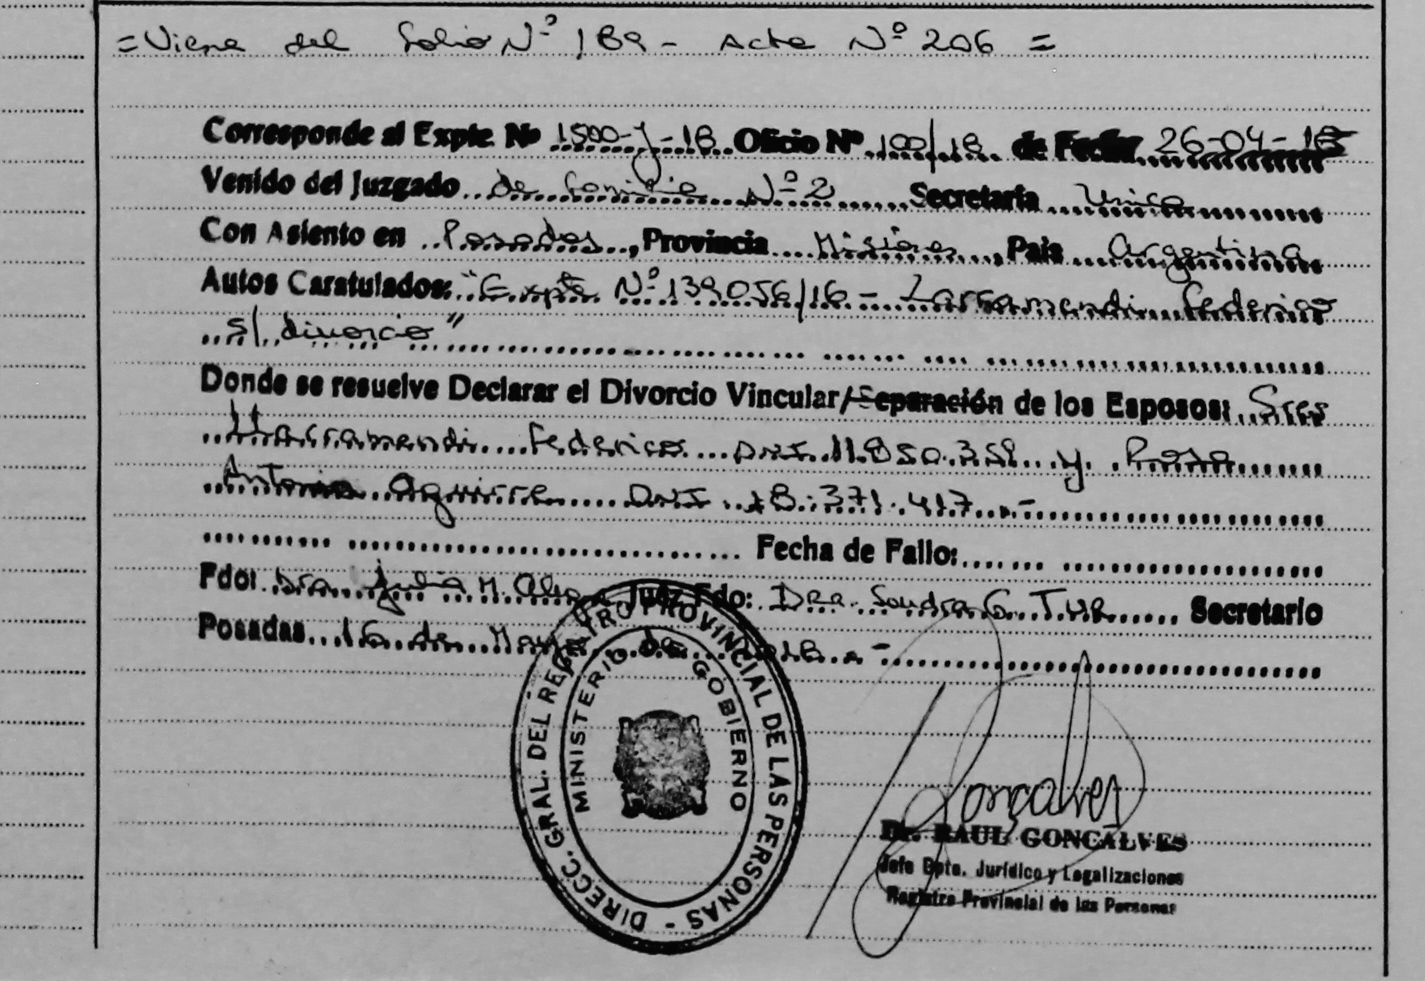 =Viene del folio Nº 189 - Acta Nº 206 =
Corresponde al Expte. Nº 1500-J-18 Oficio Nº 100/18 de Fecha 26-04-18
Venido del Juzgado de Familia Nº 2 Secretaría Unica
Con Asiento en Posadas, Provincia Misiones, País Argentina
Autos Caratulados: "Expte Nº 139056/16 - Larramendi Federico
s/ divorcio"
Donde se resuelve Declarar el Divorcio Vincular/Separación de los Esposos: Sres
Larramendi Federico DNI 11.850.358 y Rosa
Antonia Aguirre DNI 18.371.417.-
Fecha de Fallo:
Fdo: Dra. Julia M. Juez Fdo: Dra. Sandra G. Secretario
Posadas 16 de Mayo de 2018.-
DIRECC. GRAL. DEL REGISTRO PROVINCIAL DE LAS PERSONAS -
MINISTERIO DE GOBIERNO
Gonçalves
Dr. RAUL GONCALVES
Jefe Dpto. Jurídico y Legalizaciones
Registro Provincial de las Personas